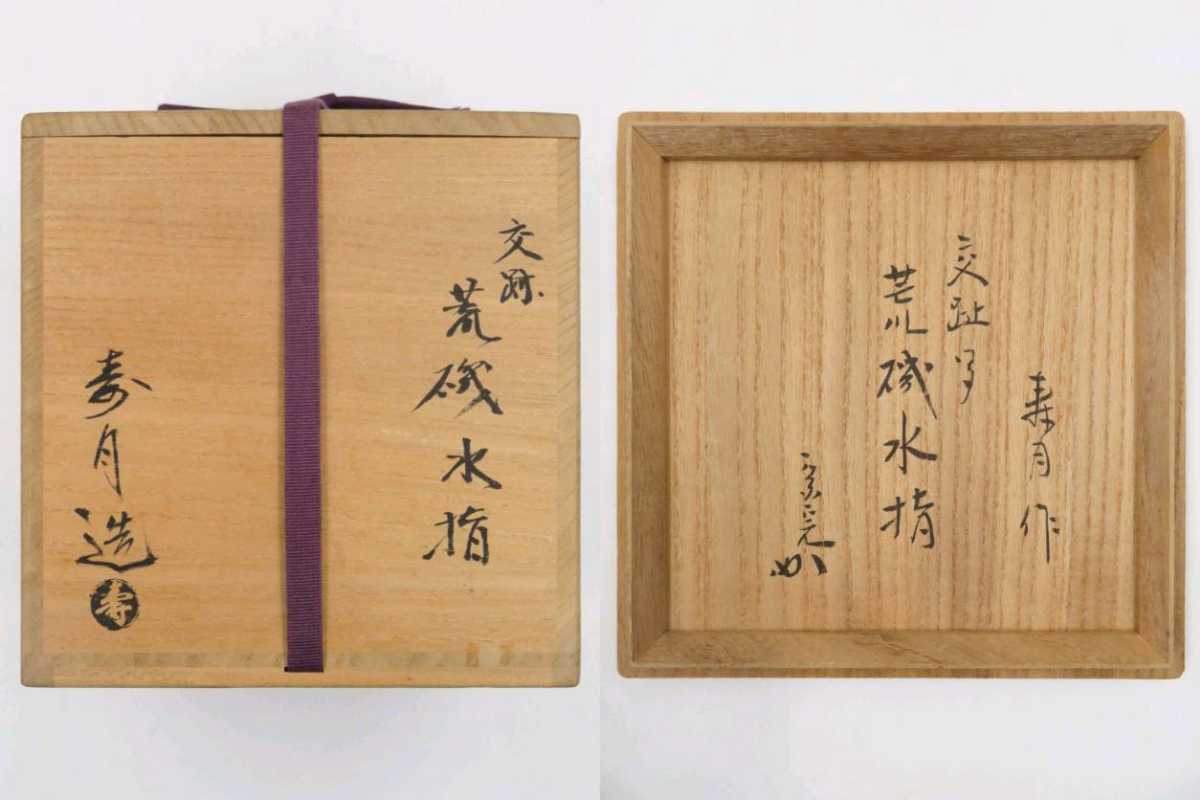 交趾
荒磯水指
寿月造
寿
寿月作
交趾写
荒磯水指